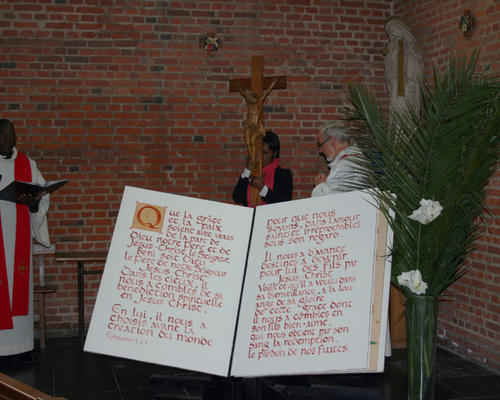 Que la grâce
et la paix
soient avec vous
de la part de
Dieu notre Père et de
Jésus-Christ le Seigneur
Béni soit Dieu
le Père de notre Seigneur
Jésus Christ.
Dans les cieux, il
nous a comblés de sa
bénédiction spirituelle
en Jésus Christ.
En lui, il nous a
choisis avant la
création du monde
Ephésiens 1, 2-4
pour que nous
soyons, dans l'amour
saints et irréprochables
sous son regard
Il nous a d'avance
destinés à devenir
pour lui des fils par
Jésus Christ.
Voilà ce qu'il a voulu dans
sa bienveillance, à la lou
ange de sa gloire
de cette grâce dont
il nous a comblés en
son fils bien-aimé,
qui nous obtient par son
sang la rédemption,
le pardon de nos fautes.